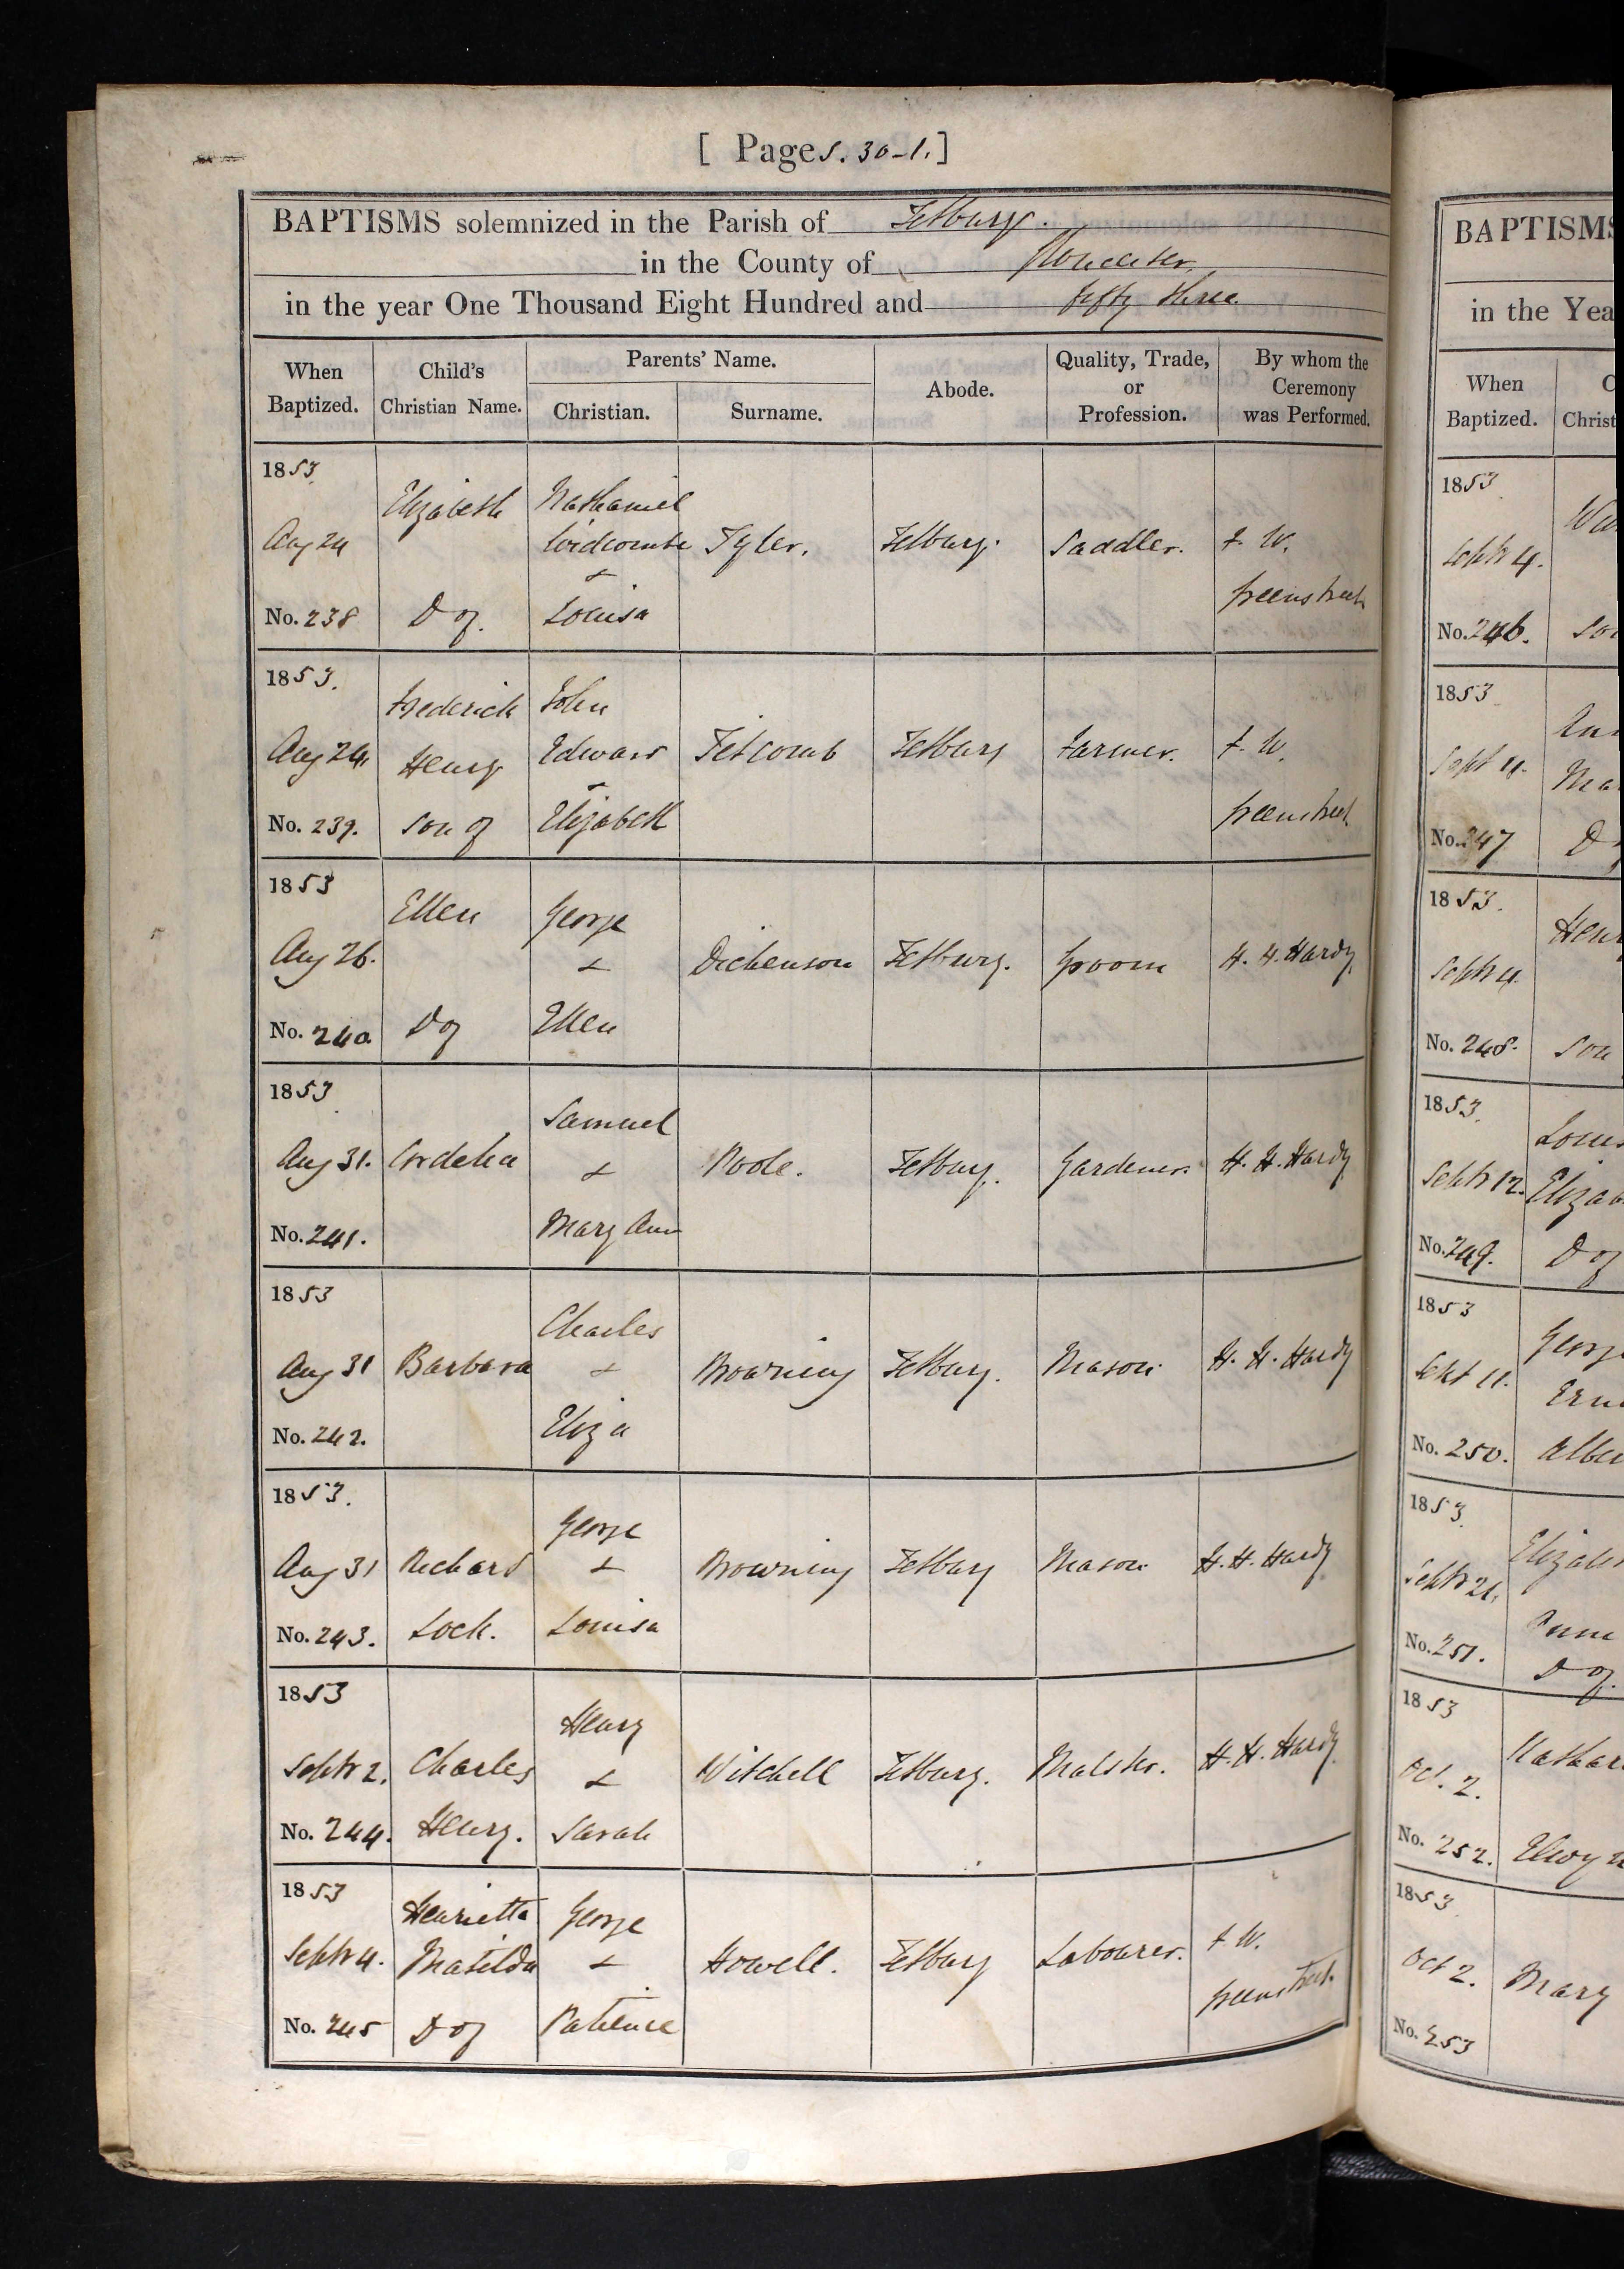 [ Pages. 30-1. ]
BAPTISMS solemnized in the Parish of Tetbury.
in the County of Gloucester.
in the year One Thousand Eight Hundred and fifty three
When Baptized. Child's Christian Name. Parents' Name. Christian. Surname. Abode. Quality, Trade, or Profession. By whom the Ceremony was Performed.
1853
Elizabeth Nathaniel
Aug 24 Widcombe Tyler. Tetbury. Saddler. F. W.
&
No. 238 D of. Louisa Greenstreet
1853.
Frederick John
Aug 24. Henry Edward Tetcomb Tetbury Farmer. F. W.
&
No. 239. Son of Elizabeth Greenstreet
1853
Ellen George
Aug 26. & Dickenson Tetbury. Groom H. H. Hardy.
No. 240 D of Ellen
1853
Samuel
Aug 31. Cordelia & Poole. Tetbury. Gardener. H. H. Hardy
No. 241. Mary Ann
1853
Charles
Aug 31 Barbara & Browning Tetbury. Mason H. H. Hardy
No. 242. Eliza
1853.
George
Aug 31 Richard & Browning Tetbury Mason H. H. Hardy
No. 243. Lock. Louisa
1853
Henry
Septr 2. Charles & Witchell Tetbury. Malster. H. H. Hardy
No. 244. Henry. Sarah
1853
Henrietta George
Septr 4. Matilda & Howell. Tetbury Labourer. F. W.
Greenstreet
No. 245 D of Patience
BAPTISMS
in the Yea
When Baptized.
Christ
1853
Septr 4.
No. 246.
1853
Sept 4.
No. 247 D
1853.
Septr 4.
No. 248. Son
1853.
Septr 12.
No. 249. D of
1853
George
Sept 11.
No. 250.
1853
Septr 21.
No. 251.
D of.
1853
Oct. 2.
No. 252.
1853
Oct 2. Mary
No. 253